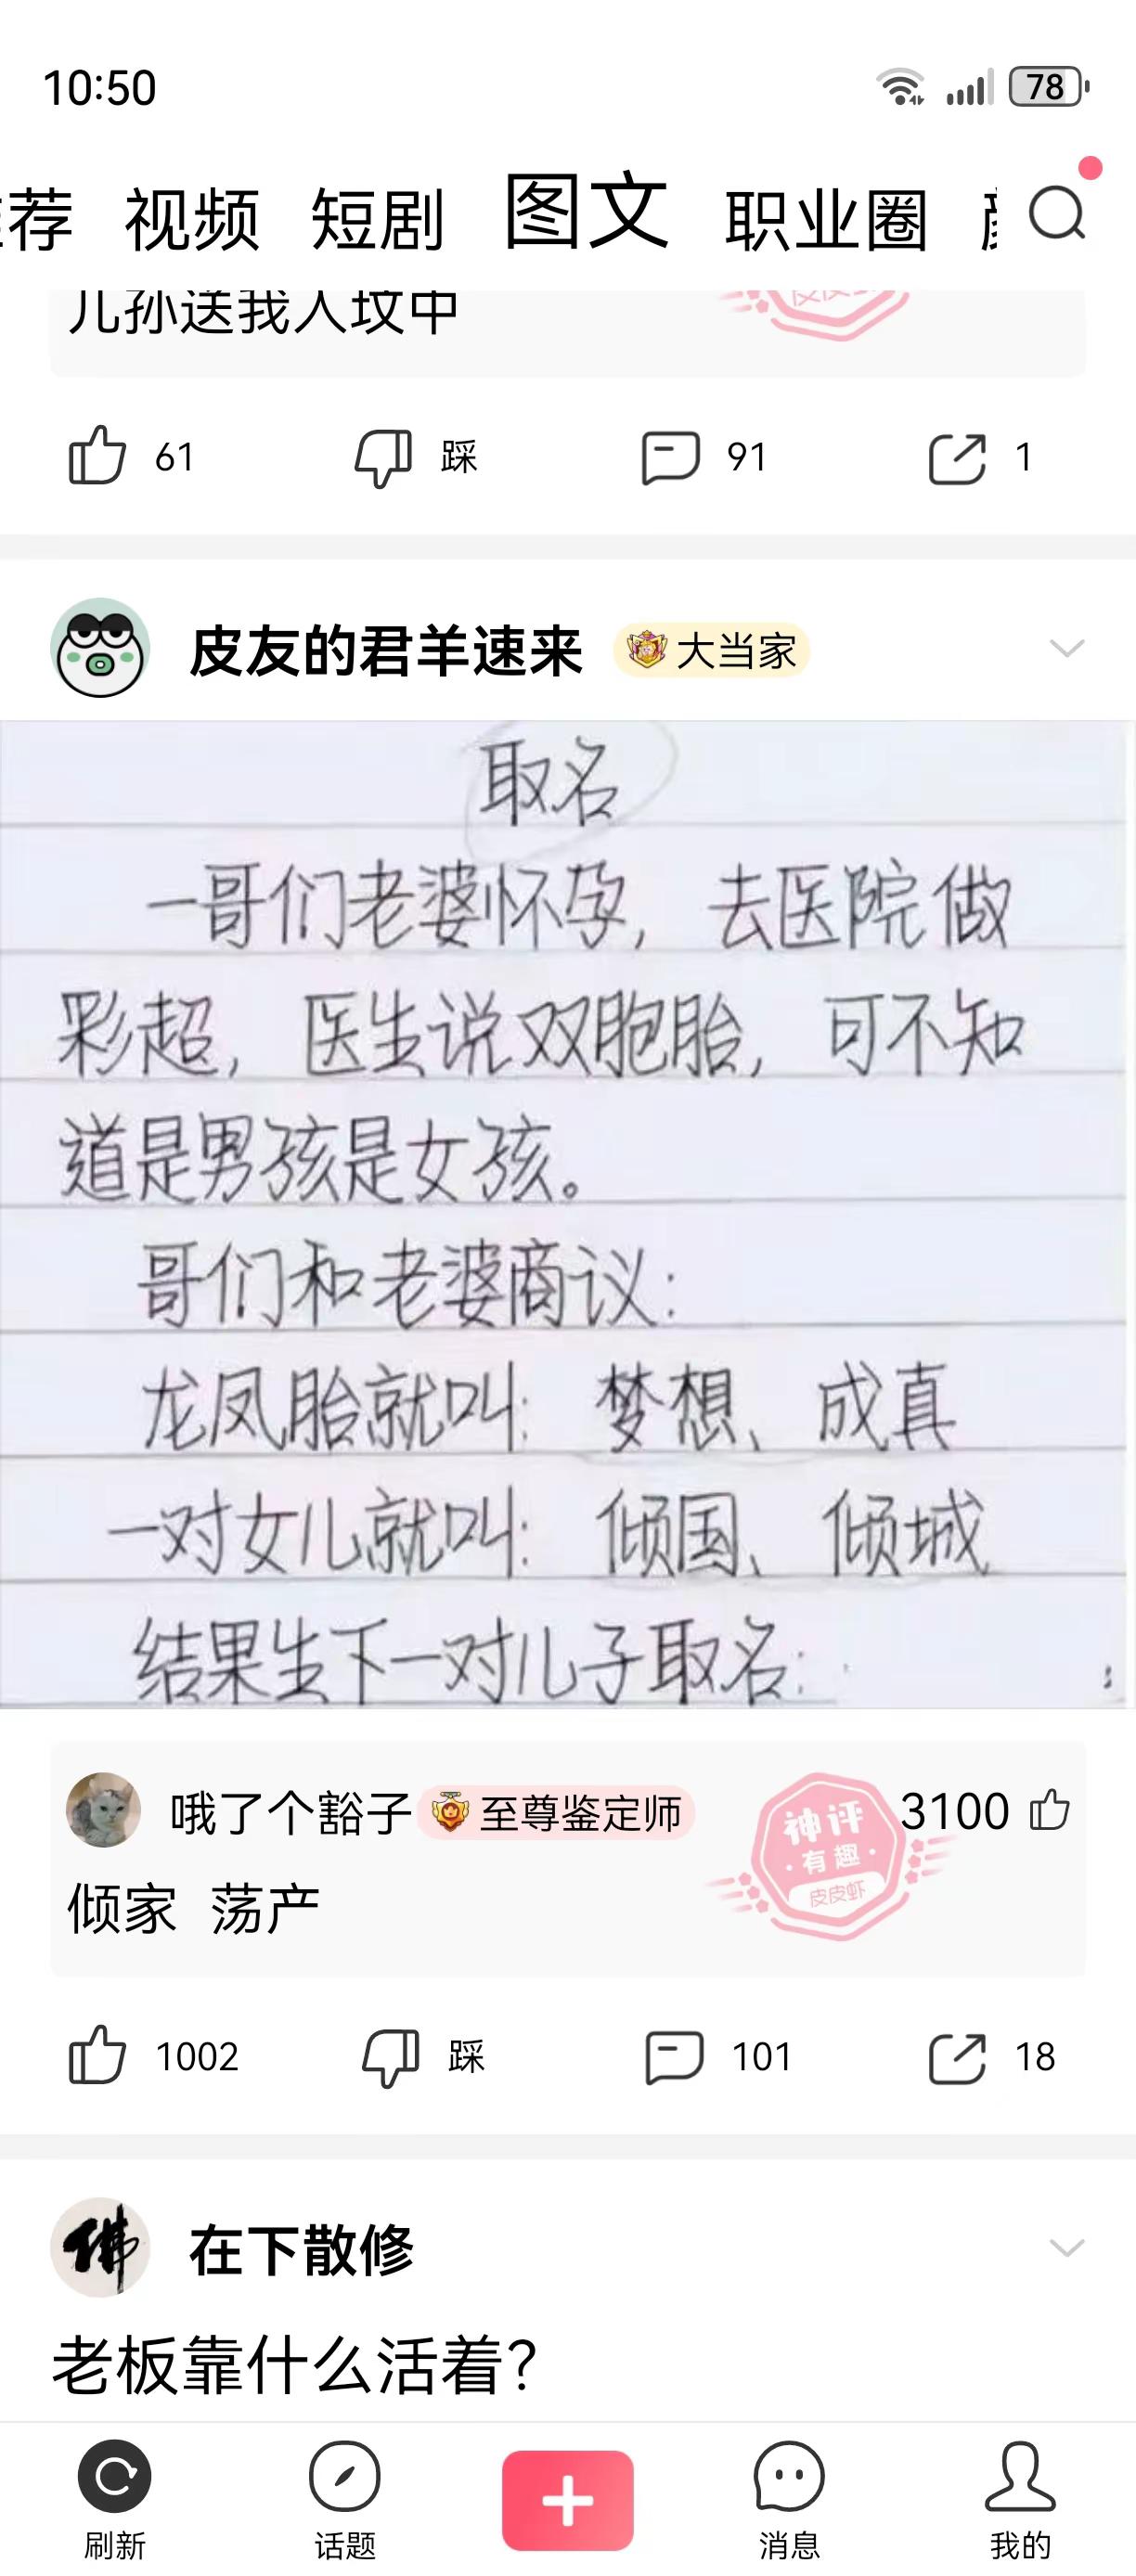 10:50
78
荐 视频 短剧 图文 职业圈
儿孙送我入坟中
61 踩 91 1
皮友的君羊速来 大当家
取名
一哥们老婆怀孕,去医院做
彩超,医生说双胞胎,可不知
道是男孩是女孩。
哥们和老婆商议:
龙凤胎就叫:梦想、成真
一对女儿就叫:倾国、倾城
结果生下一对儿子取名:
哦了个豁子 至尊鉴定师
神评
·有趣·
皮皮虾
3100
倾家 荡产
1002 踩 101 18
佛
在下散修
老板靠什么活着?
刷新 话题 消息 我的